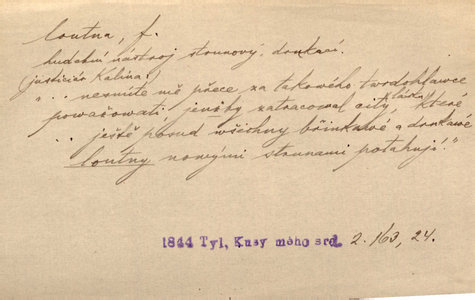 loutna, f.
hudební nástroj strunový, drnkací.
(justiciár Kalina:)
". . nesmíte mě přece za takového tvrdohlavce
považovati, jenžby zatracoval city lásky, které
. . ještě posud wšechny břinkavé a drnkavé
loutny novými strunami potahují!"
1844 Tyl, Kusy mého srd. 2. 163, 24.